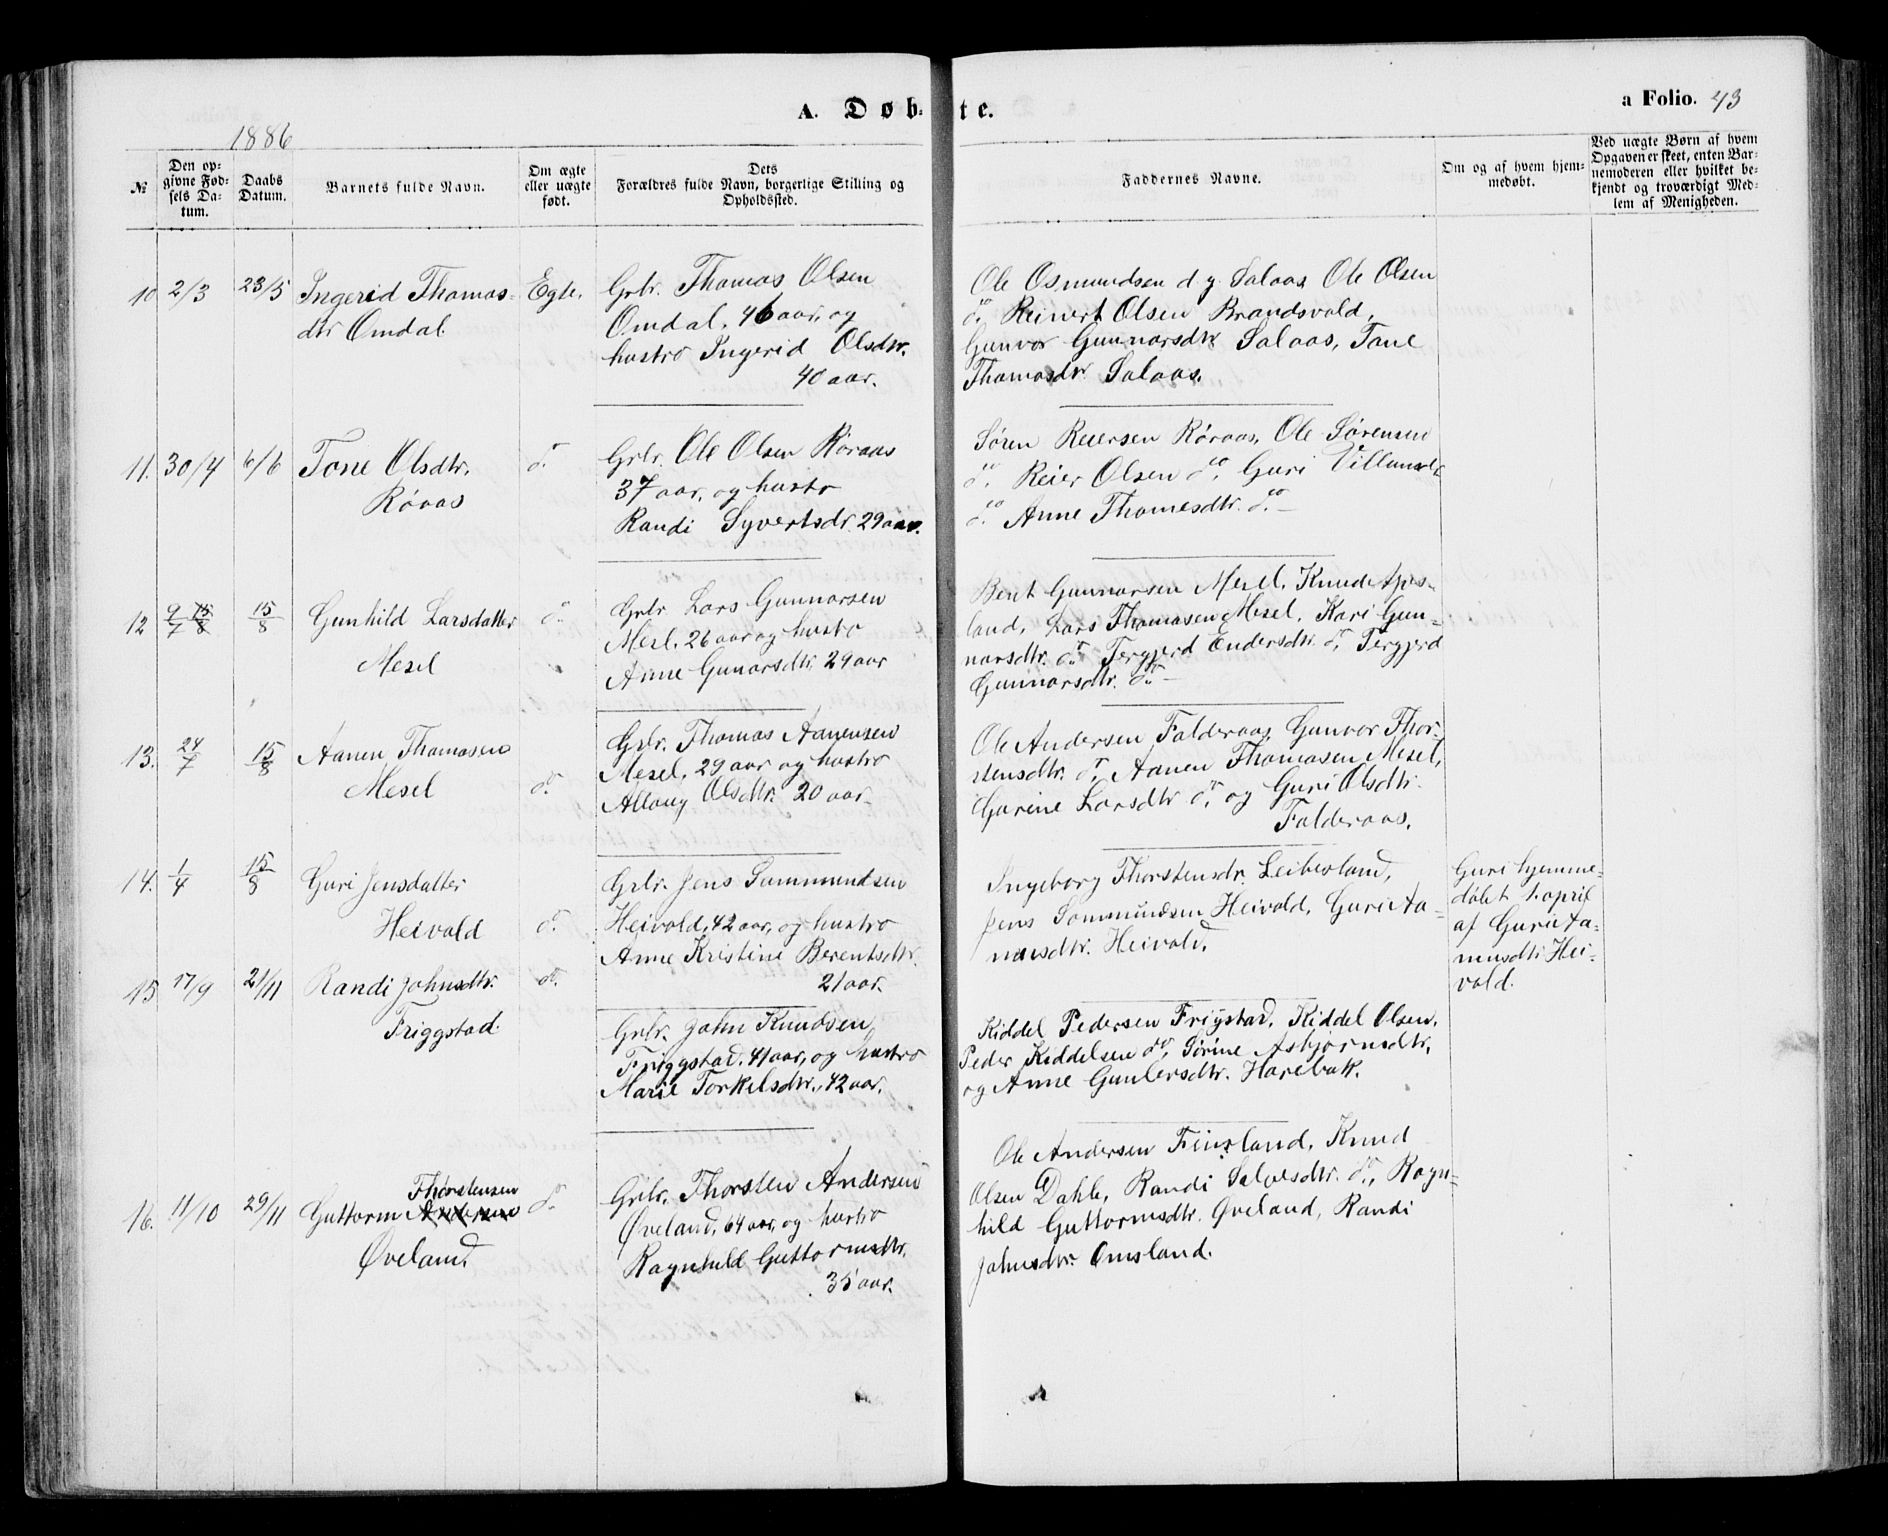 A. Døb- te.
a Folio. 43
1886
№
Den op-
givne Fød-
sels Da-
tum.
Daabs
Datum.
Barnets fulde Navn.
Om ægte
eller uægte
født.
Dets
Forældres fulde Navn, borgerlige Stilling og
Opholdssted.
Faddernes Navne.
Om og af hvem hjem-
medøbt.
Ved uægte Børn af hvem
Opgaven er skeet, enten Bar-
nemoderen eller hvilket be-
kjendt og troværdigt Med-
lem af Menigheden.
10 2/3 23/5 Ingerid Thomas-
dtr Omdal.
Egte.
Grbr. Thomas Olsen
Omdal, 46 aar, og
hustro Ingerid Olsdtr.
40 aar.
Ole Osmundsen d y. Salaas, Ole Olsen
do. Reinert Olsen Brandsvold,
Gunvor Gunnarsdtr Salaas, Tone
Thomasdtr. Salaas.
11. 30/4 6/6 Tone Olsdtr.
Røraas
do.
Grbr. Ole Olsen Røraas
37 aar, og hustro
Randi Syvertsdr. 29 aar.
Søren Reiersen Røraas, Ole Sørensen
do. Reier Olsen do, Guri
do. Anne Thomesdtr. do. —
12 9/7 15/8 15/8 Gunhild Larsdatter
Mesel
do.
Grbr. Lars Gunnarsen
Mesl. 26 aar og hustro
Anne Gunarsdtr. 29 aar
Berit Gunnarsen Mesel, Knud Apes-
land, Lars Thomasen Mesel, Kari Gun-
narsdtr. do. Tergjerd Endersdtr. do, Tergjerd
Gunnarsdtr. do. —
13. 24/7 15/8 Aanen Thomasen
Mesel
do.
Grbr. Thomas Aanensen
Mesel, 29 aar og hustro
Allaug Olsdtr. 20 aar.
Ole Andersen Falderaas, Gunvor Thor-
stensdtr. do, Aanen Thomasen Mesel,
Gurine Larsdtr do, og Guri Olsdtr.
Falderaas.
14. 1/4 15/8 Guri Jensdatter
Heivold
do.
Grbr. Jens Sammundsen
Heivold, 42 aar, og hustro
Anne Kristine Berentsdtr.
21 aar.
Ingeborg Thorstensdr. Leibesland,
Jens Sammundsen Heivold, Gurie Aa-
nensdtr. Heivold.
Guri hjemme-
døbt 1. april
af Gurie Aa-
nensdtr. Hei-
vold.
15 17/9 21/11 Randi Johnsdtr.
Friggstad.
do.
Grbr. John Knudsen
Friggstad. 41 aar, og hustro
Marie Torkelsdtr., 42 aar.
Kiddel Pedersen Frigstad, Kiddel Olsen,
Peder Kiddelsen do, Sørine Asbjørnsdtr,
og Anne Gunlersdtr. Harebak.
16. 11/10 29/11 Guttorm Thorstensen
Andersen
Øveland.
do.
Grbr. Thorsten Andersen
Øveland, 64 aar, og hustro
Ragnhild Guttormsdtr.
35 aar.
Ole Andersen Finsland, Knud
Olsen Dahle, Randi Salvesdtr. do., Ragn-
hild Guttormsdtr. Øveland, Randi
Johnsdtr. Omsland.